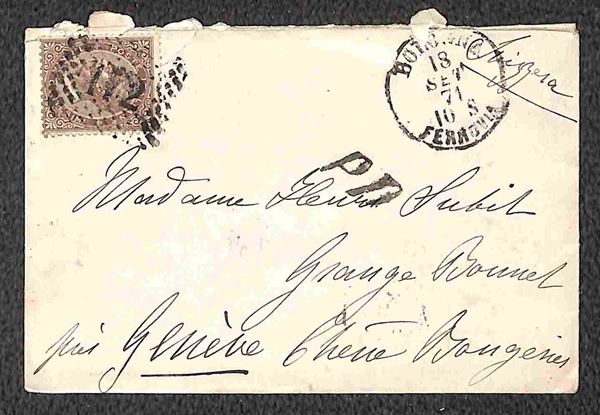 BOLOGNA
18
SET
71
10 S
FERROVIA
Svizzera
172
P.D.
Madame Henri Subit
Grange Bonnet
près Genève Chêne Bougeries